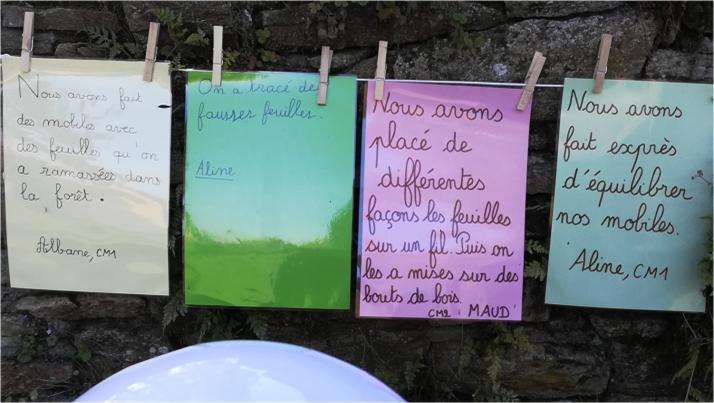 Nous avons fait
des mobiles avec
des feuilles qu'on
a ramassées dans
la forêt.
Albane, CM1
On a tracé de
fausses feuilles.
Aline
Nous avons
placé de
différentes
façons les feuilles
sur un fil. Puis on
les a mises sur des
bouts de bois.
CM2 MAUD
Nous avons
fait exprès
d'équilibrer
nos mobiles.
Aline, CM1